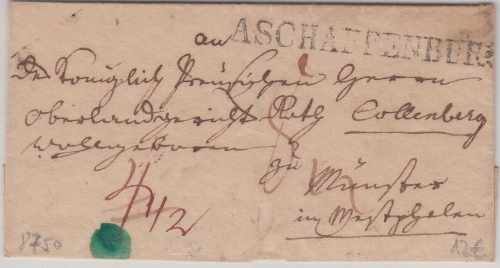 an ASCHAFFENBURG
den Königlich Preusischen Herrn
Oberlandgericht Rath Collenberg
wohlgeboren
zu
Münster
in Westphalen
4/42
8750
12€